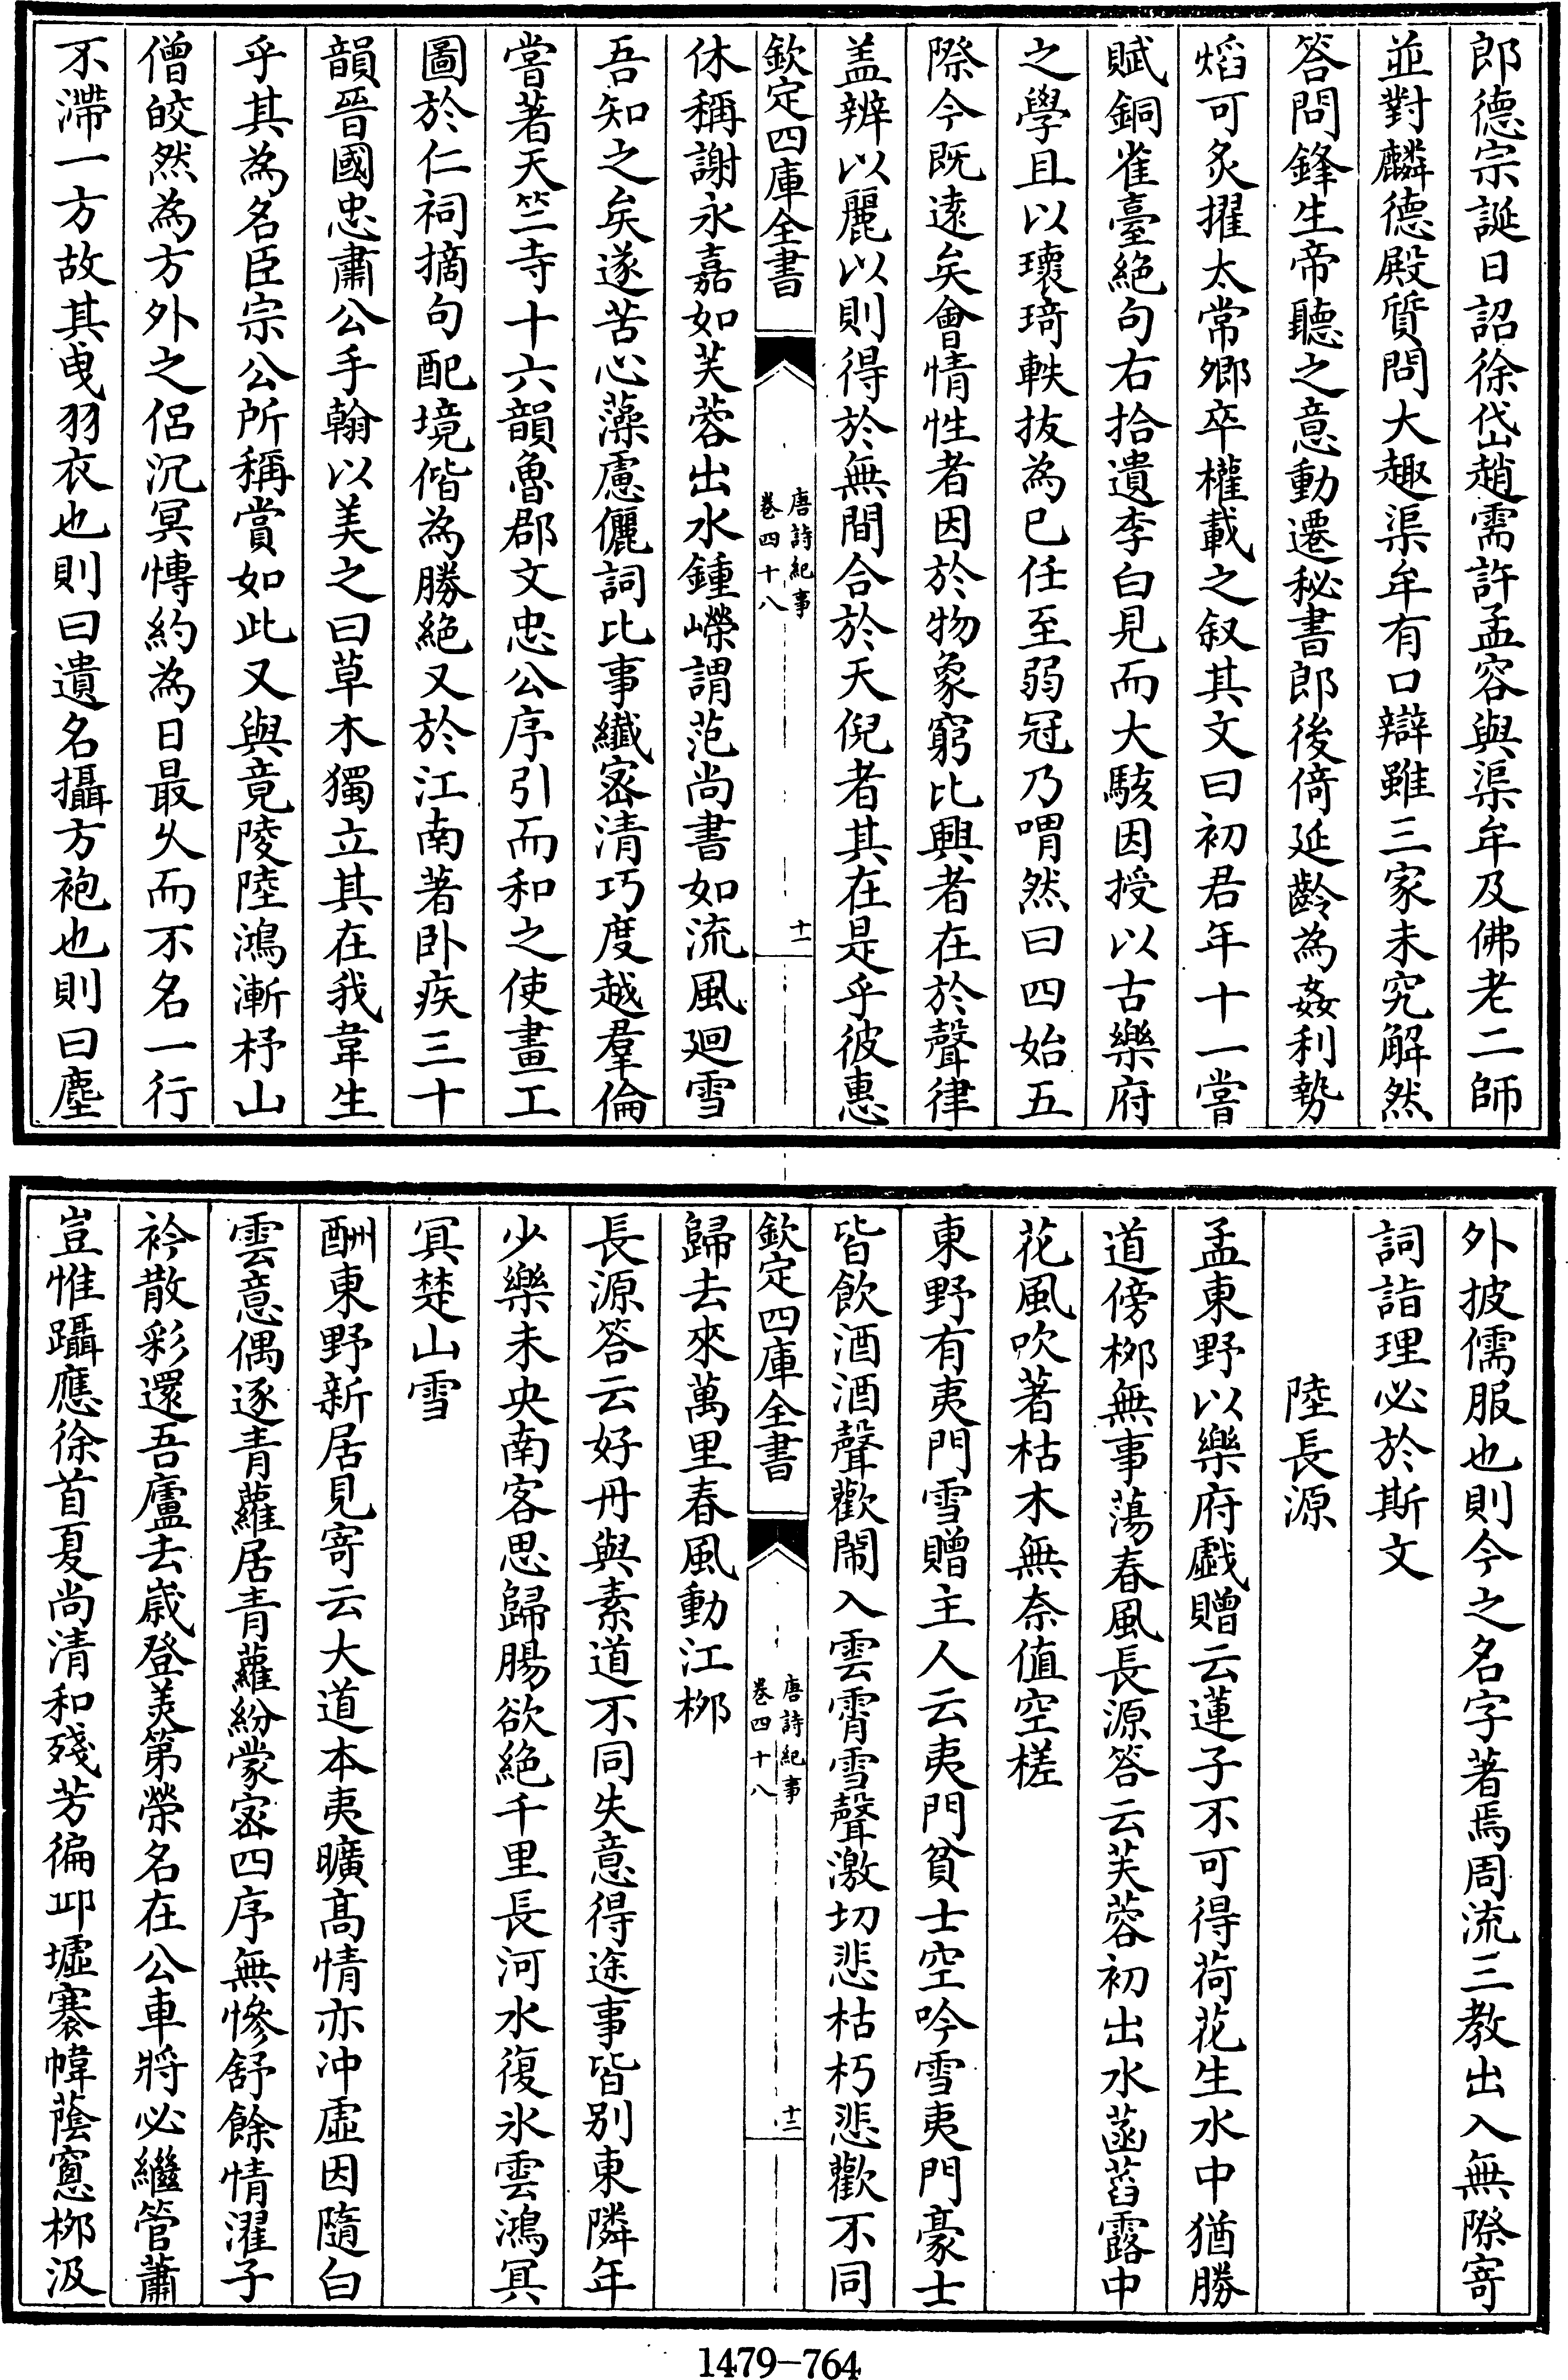 郎德宗誕日詔徐岱趙需許孟容與渠牟及佛老二師
並對麟德殿質問大趣渠牟有口辯雖三家未究解然
答問鋒生帝聽之意動遷秘書郎後倚延齡為姦利勢
焰可炙擢太常卿卒權載之叙其文曰初君年十一嘗
賦銅雀臺絕句右拾遺李白見而大駭因授以古樂府
之學且以瓌琦軼拔為已任至弱冠乃喟然曰四始五
際今既遠矣會情性者因於物象窮比興者在於聲律
盖辨以麗以則得於無間合於天倪者其在是乎彼惠
欽定四庫全書
唐詩紀事
卷四十八
十一
休稱謝永嘉如芙蓉出水鍾嶸謂范尚書如流風廻雪
吾知之矣遂苦心藻慮儷詞比事纎宻清巧度越羣倫
嘗著天竺寺十六韻魯郡文忠公序引而和之使畫工
圖於仁祠摘句配境偕為勝絕又於江南著卧疾三十
韻晉國忠肅公手翰以美之曰草木獨立其在我韋生
乎其為名臣宗公所稱賞如此又與竟陵陸鴻漸杼山
僧皎然為方外之侶沉冥慱約為日最久而不名一行
不滯一方故其曳羽衣也則曰遺名攝方袍也則曰塵
外披儒服也則今之名字著焉周流三教出入無際寄
詞詣理必於斯文
陸長源
孟東野以樂府戲贈云蓮子不可得荷花生水中猶勝
道傍栁無事蕩春風長源答云芙蓉初出水菡萏露中
花風吹著枯木無奈值空槎
東野有夷門雪贈主人云夷門貧士空吟雪夷門豪士
皆飲酒酒聲歡閙入雲霄雪聲激切悲枯朽悲歡不同
欽定四庫全書
唐詩紀事
卷四十八
十二
歸去來萬里春風動江栁
長源答云好丹與素道不同失意得途事皆别東隣年
少樂未央南客思歸腸欲絕千里長河水復氷雲鴻冥
冥楚山雪
酬東野新居見寄云大道本夷曠髙情亦冲虛因隨白
雲意偶逐青蘿居青蘿紛蒙宻四序無慘舒餘情濯子
衿散彩還吾廬去嵗登美第榮名在公車將必繼管蕭
豈惟躡應徐首夏尚清和殘芳徧邱墟褰幃蔭窻栁汲
1479-764